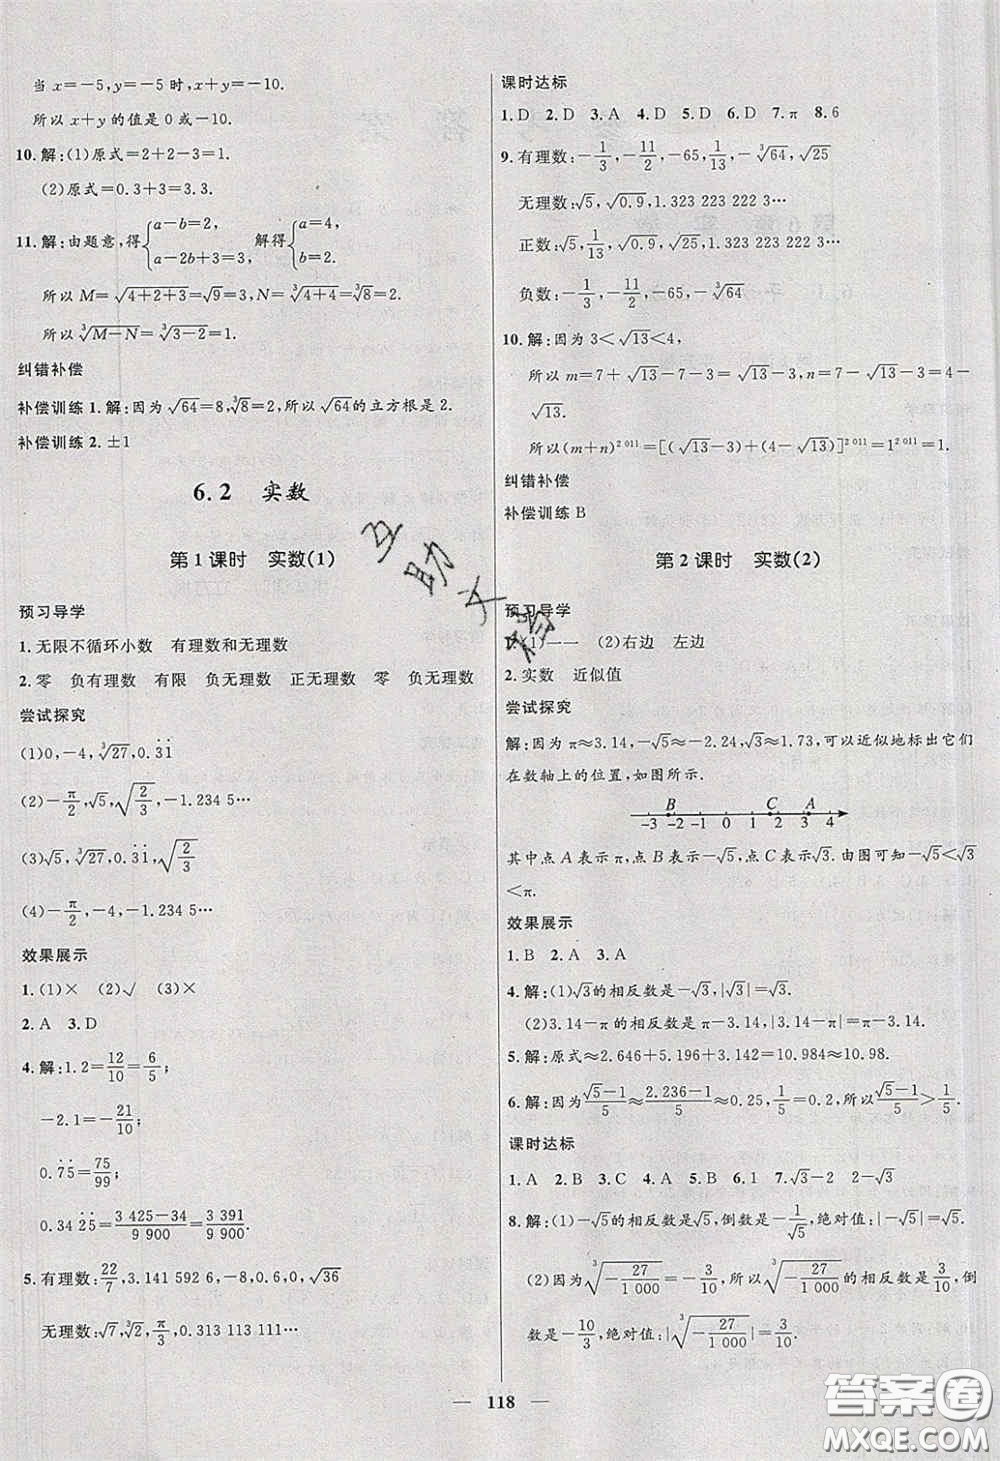 当 x=-5,y=-5 时,x+y=-10.
所以 x+y 的值是 0 或-10.
10.解:(1)原式=2+2-3=1.
(2)原式=0.3+3=3.3.
11.解:由题意,得{a-b=2, a-2b+3=2, 解得{a=4, b=2.
所以 M=√(4+2+3)=√9=3,N=∛(4+4)=∛8=2.
所以∛(M-N)=∛(3-2)=1.
纠错补偿
补偿训练 1.解:因为√64=8,∛8=2,所以√64的立方根是 2.
补偿训练 2.±1
6.2 实数
第 1 课时 实数(1)
预习导学
1.无限不循环小数 有理数和无理数
2.零 负有理数 有限 负无理数 正无理数 零 负无理数
尝试探究
(1)0,-4,∛27,0.3̇1̇
(2)-π/2,√5,√(2/3),-1.234 5…
(3)√5,∛27,0.3̇1̇,√(2/3)
(4)-π/2,-4,-1.234 5…
效果展示
1.(1)× (2)√ (3)×
2.A 3.D
4.解:1.2=12/10=6/5;
-2.1=-21/10;
0.7̇5̇=75/99;
0.34 2̇5̇=(3 425-34)/9 900=3 391/9 900.
5.有理数:22/7,3.141 592 6,-8,0.6,0,√36
无理数:√7,∛2,π/3,0.313 113 111…
课时达标
1.D 2.D 3.A 4.D 5.D 6.D 7.π 8.6
9.有理数:-1/3,-11/2,-65,1/13,-∛64,√25
无理数:√5,√0.9,1.323 223 222 3…
正数:√5,1/13,√0.9,√25,1.323 223 222 3…
负数:-1/3,-11/2,-65,-∛64
10.解:因为 3<√13<4,
所以 m=7+√13-7-3=√13-3,n=7-√13-3=4-
√13.
所以(m+n)^2 011=[(√13-3)+(4-√13)]^2 011=1^2 011=1.
纠错补偿
补偿训练 B
第 2 课时 实数(2)
预习导学
1.(1)一一 (2)右边 左边
2.实数 近似值
尝试探究
解:因为 π≈3.14,-√5≈-2.24,√3≈1.73,可以近似地标出它们
在数轴上的位置,如图所示.
B C A
-3 -2 -1 0 1 2 3 4
其中点 A 表示 π,点 B 表示-√5,点 C 表示√3.由图可知-√5<√3
<π.
效果展示
1.B 2.A 3.A
4.解:(1)√3的相反数是-√3,|√3|=√3.
(2)3.14-π 的相反数是 π-3.14,|3.14-π|=π-3.14.
5.解:原式≈2.646+5.196+3.142=10.984≈10.98.
6.解:因为(√5-1)/5≈(2.236-1)/5≈0.25,1/5=0.2,所以(√5-1)/5>1/5.
课时达标
1.A 2.B 3.C 4.A 5.B 6.1 7.√3-2 2-√3
8.解:(1)-√5的相反数是√5,倒数是-1/√5,绝对值:|-√5|=√5.
(2)因为∛(-27/1 000)=-3/10,所以∛(-27/1 000)的相反数是3/10,倒
数是-10/3,绝对值:|∛(-27/1 000)|=3/10.
118
互助文档
答案圈
MXQE.COM